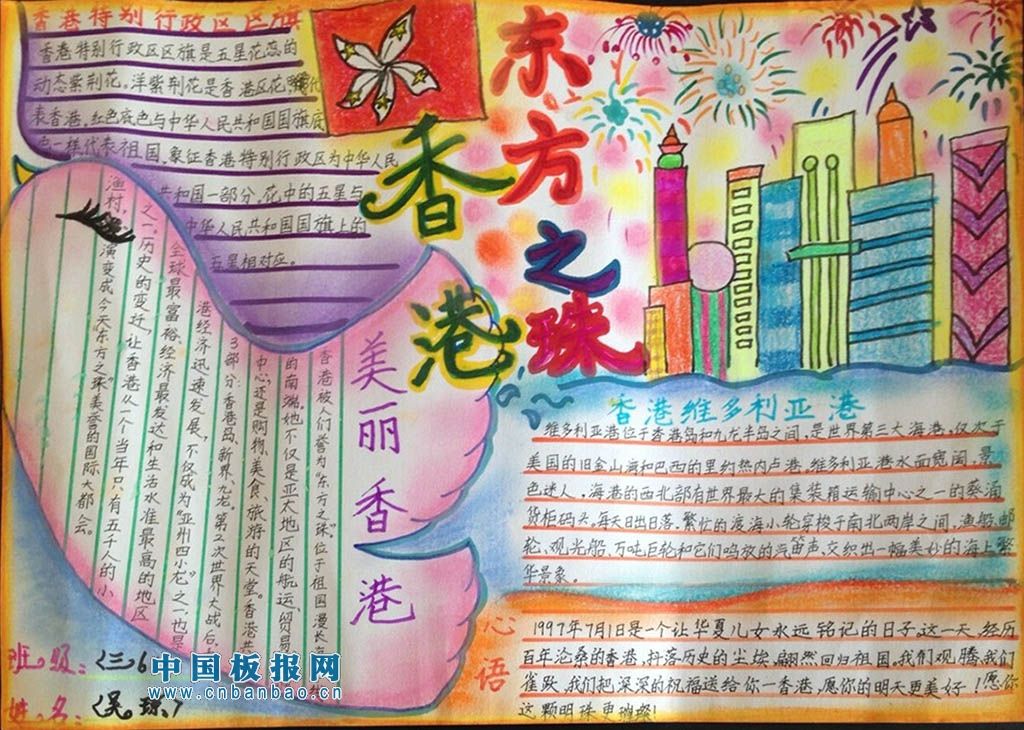 香港特别行政区区旗
香港特别行政区区旗是五星花蕊的
动态紫荆花。洋紫荆花是香港区花
代
表香港,红色底色与中华人民共和国国旗底
色一样代表祖国,象征香港特别行政区为中华人民
共和国一部分,花中的五星与
中华人民共和国国旗上的
五星相对应。
东方之珠
香港
美丽香港
香港被人们誉为“东方之珠”,位于祖国漫长
的南端。她不仅是亚太地区的航运、贸易
中心,还是购物、美食、旅游的天堂。香港共
3部分:香港岛、新界、九龙。第2次世界大战后,
港经济迅速发展,不仅成为“亚州四小龙”之一,也是
全球最富裕、经济最发达和生活水准最高的地区
之一。历史的变迁,让香港从一个当年只有五千人的小
渔村,演变成今天东方之珠”美誉的国际大都会。
香港维多利亚港
维多利亚港位于香港岛和九龙半岛之间,是世界第三大海港,仅次于
美国的旧金山湾和巴西的里约热内卢港,维多利亚港水面宽阔,景
色迷人,海港的西北部有世界最大的集装箱运输中心之一的葵涌
货柜码头,每天日出日落,繁忙的渡海小轮穿梭于南北两岸之间,渔船,邮
轮、观光船、万吨巨轮和它们鸣放的汽笛声,交织出一幅美妙的海上繁
华景象。
心语
1997年7月1日是一个让华夏儿女永远铭记的日子,这一天,经历
百年沧桑的香港,抖落历史的尘埃,翩然回归祖国。我们观腾,我们
雀跃,我们把深深的祝福送给你—香港,愿你的明天更美好!愿你
这颗明珠更璀璨!
班级:〈三6
姓名:〈吴珠〉
中国板报网
www.cnbanbao.cn